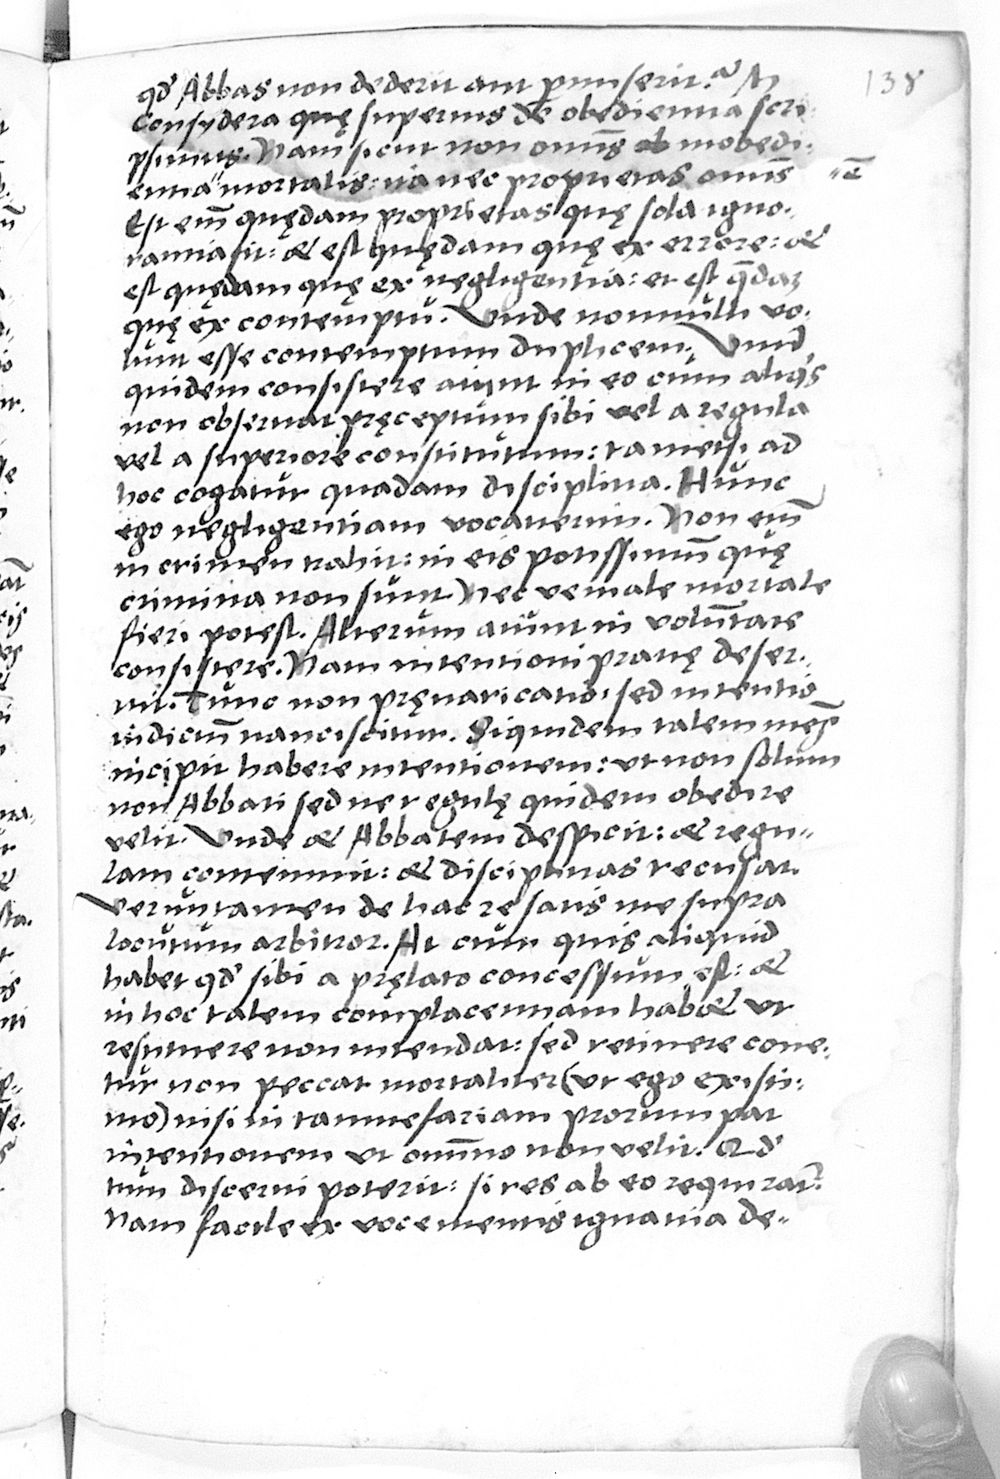 138
qd' Abbas non dederit aut p̲miserit.? M
Consydera quę superius de obedientia scri-
psimus. Nam sicut non omnis inobedi-
entia mortalis: ita nec proprietas omīs "ē
Est em̄ quędam proprietas quę sola igno-
rantia fit: & est quędam quę ex errore: &
est quędam quę ex negligentia: et est q̄daz
quę ex contemptu. Unde nonnulli vo-
lunt esse contemptum duplicem. Unū
quidem consistere aiunt in eo cum aliq's
non obseruat pręceptum sibi vel a regula
vel a superiore constitutum: tametsi ad
hoc cogatur quadam disciplina. Hunc
ego negligentiam vocauerim. Non em̄
in crimen trahit: in eis potissimū quę
crimina non sunt Nec veniale mortale
fieri potest. Alterum aiunt in volūtate
consistere. Nam intentioni prauę deser-
uit. Tunc non pręuaricatio: sed intentio
iudiciū nanciscitur. Siquidem talem
incipit habere intentionem: ut non solum
non Abbati sed ne regulę quidem obedire
velit. Unde & Abbatem despicit: & regu-
lam contemnit: & disciplinas recusat.
Veruntamen de hac re satis me supra
locutum arbitror. At cum quis aliquid
habet qd' sibi a pręlato concessum est: &
in hoc talem complacentiam hab& ut
resumere non intendat: sed retinere cone-
tur non peccat mortaliter (ut ego existi-
mo) nisi in tam nefariam prorumpat
intentionem ut omīno non velit. Qd'
tum discerni poterit: si res ab eo requirat̄.
Nam facile ex voce mentis ignauia de-